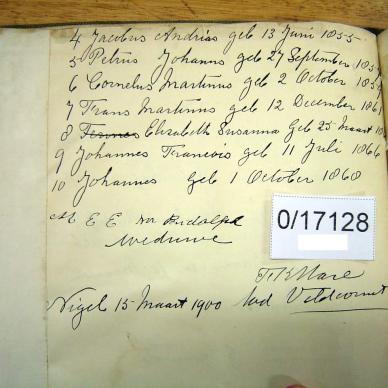 4 Jacobus Andrias geb 13 Juni 1855
5 Petrus Johanns geb 27 September 185
6 Cornelus Martinus geb 2 October 185
7 Frans Martinus geb 12 December 186
8 Elizabeth Susanna Geb 25 Maart 18
9 Johannes Francois geb 11 Juli 1866
10 Johannes geb 1 October 1868
M E E Rudolph
Weduwe
0/17128
Nigel 15 Maart 1900 Veldcornet